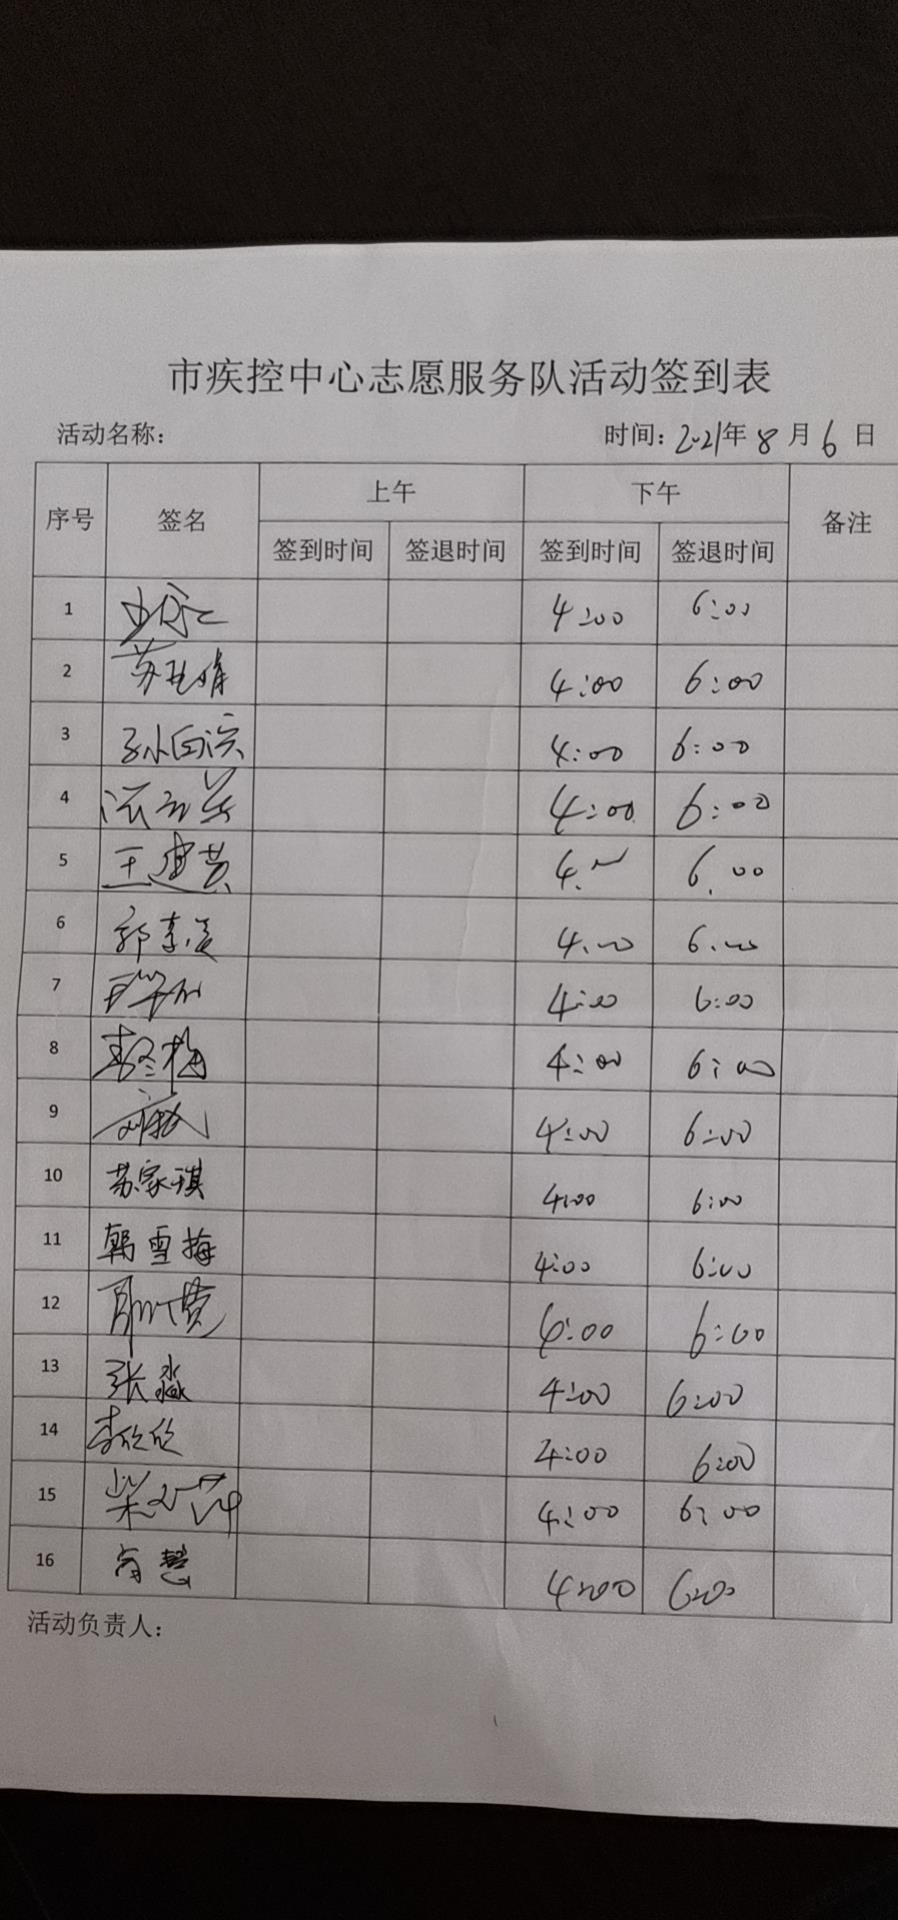 市疾控中心志愿服务队活动签到表
活动名称： 时间：2021年8月6日
序号 签名 上午 下午 备注
签到时间 签退时间 签到时间 签退时间
1 4:00 6:00
2 4:00 6:00
3 4:00 6:00
4 4:00 6:00
5 王建英 4:00 6:00
6 4:00 6:00
7 4:00 6:00
8 李冬梅 4:00 6:00
9 4:00 6:00
10 苏家琪 4:00 6:00
11 韩雪梅 4:00 6:00
12 4:00 6:00
13 张淼 4:00 6:00
14 李欣欣 4:00 6:00
15 4:00 6:00
16 4:00 6:00
活动负责人：